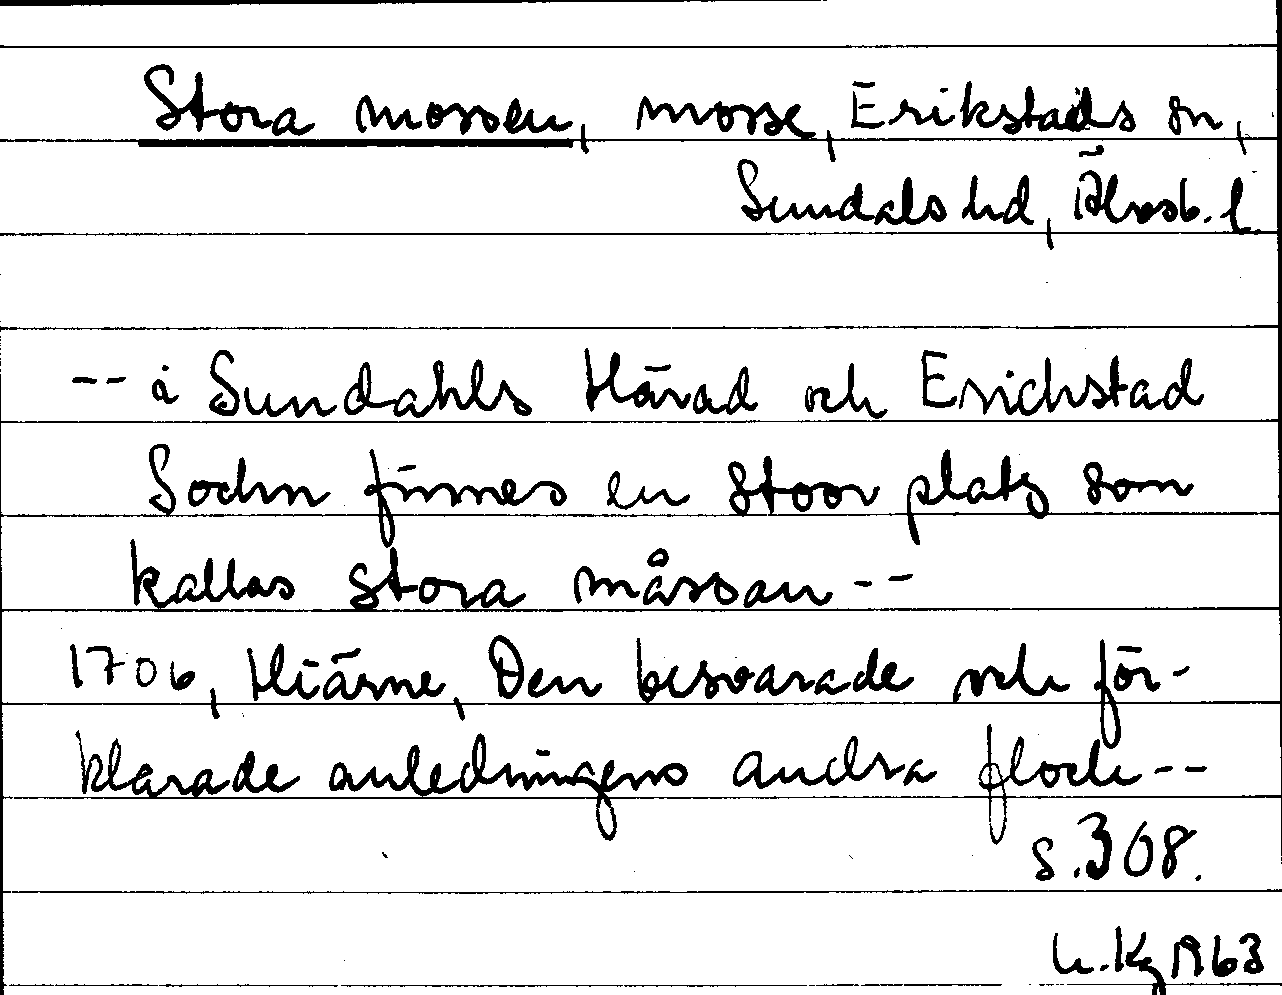 Stora mossen, mosse, Erikstads sn,
Sundals hd, Älvsb. l.
-- i Sundahls Härad och Erichstad
Sochn finnes en stoor platz som
kallas stora måssan --
1706, Hiärne, Den besvarade och för-
klarade anledningens andra flock --
s. 308.
1963